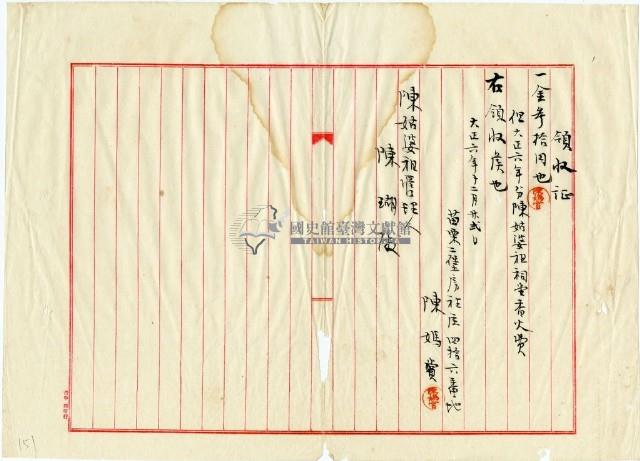 領收証
一金參拾円也
但大正六年分陳姑婆祖祠堂香火費
右領收候也
大正六年十二月廿弍日
苗栗二堡房裡庄四拾六番地
陳媽賞
陳姑婆祖管理人
陳瑚殿
國史館臺灣文獻館
TAIWAN HISTORICA
151